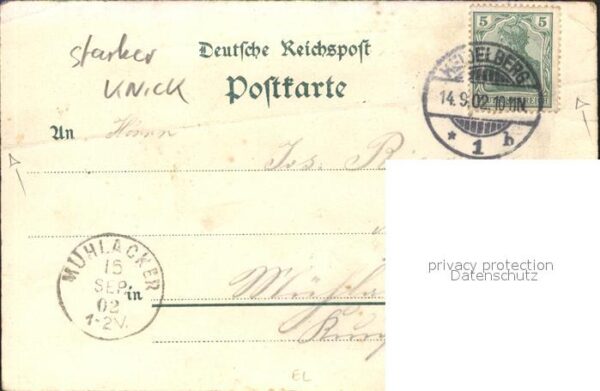 starker
KNICK
Deutsche Reichspost
Postkarte
5 5
HEIDELBERG
14.9.02.10-11N.
* 1 b
An Herrn
Jos.
MÜHLACKER
15
SEP.
02
1-2V.
in
privacy protection
Datenschutz
EL